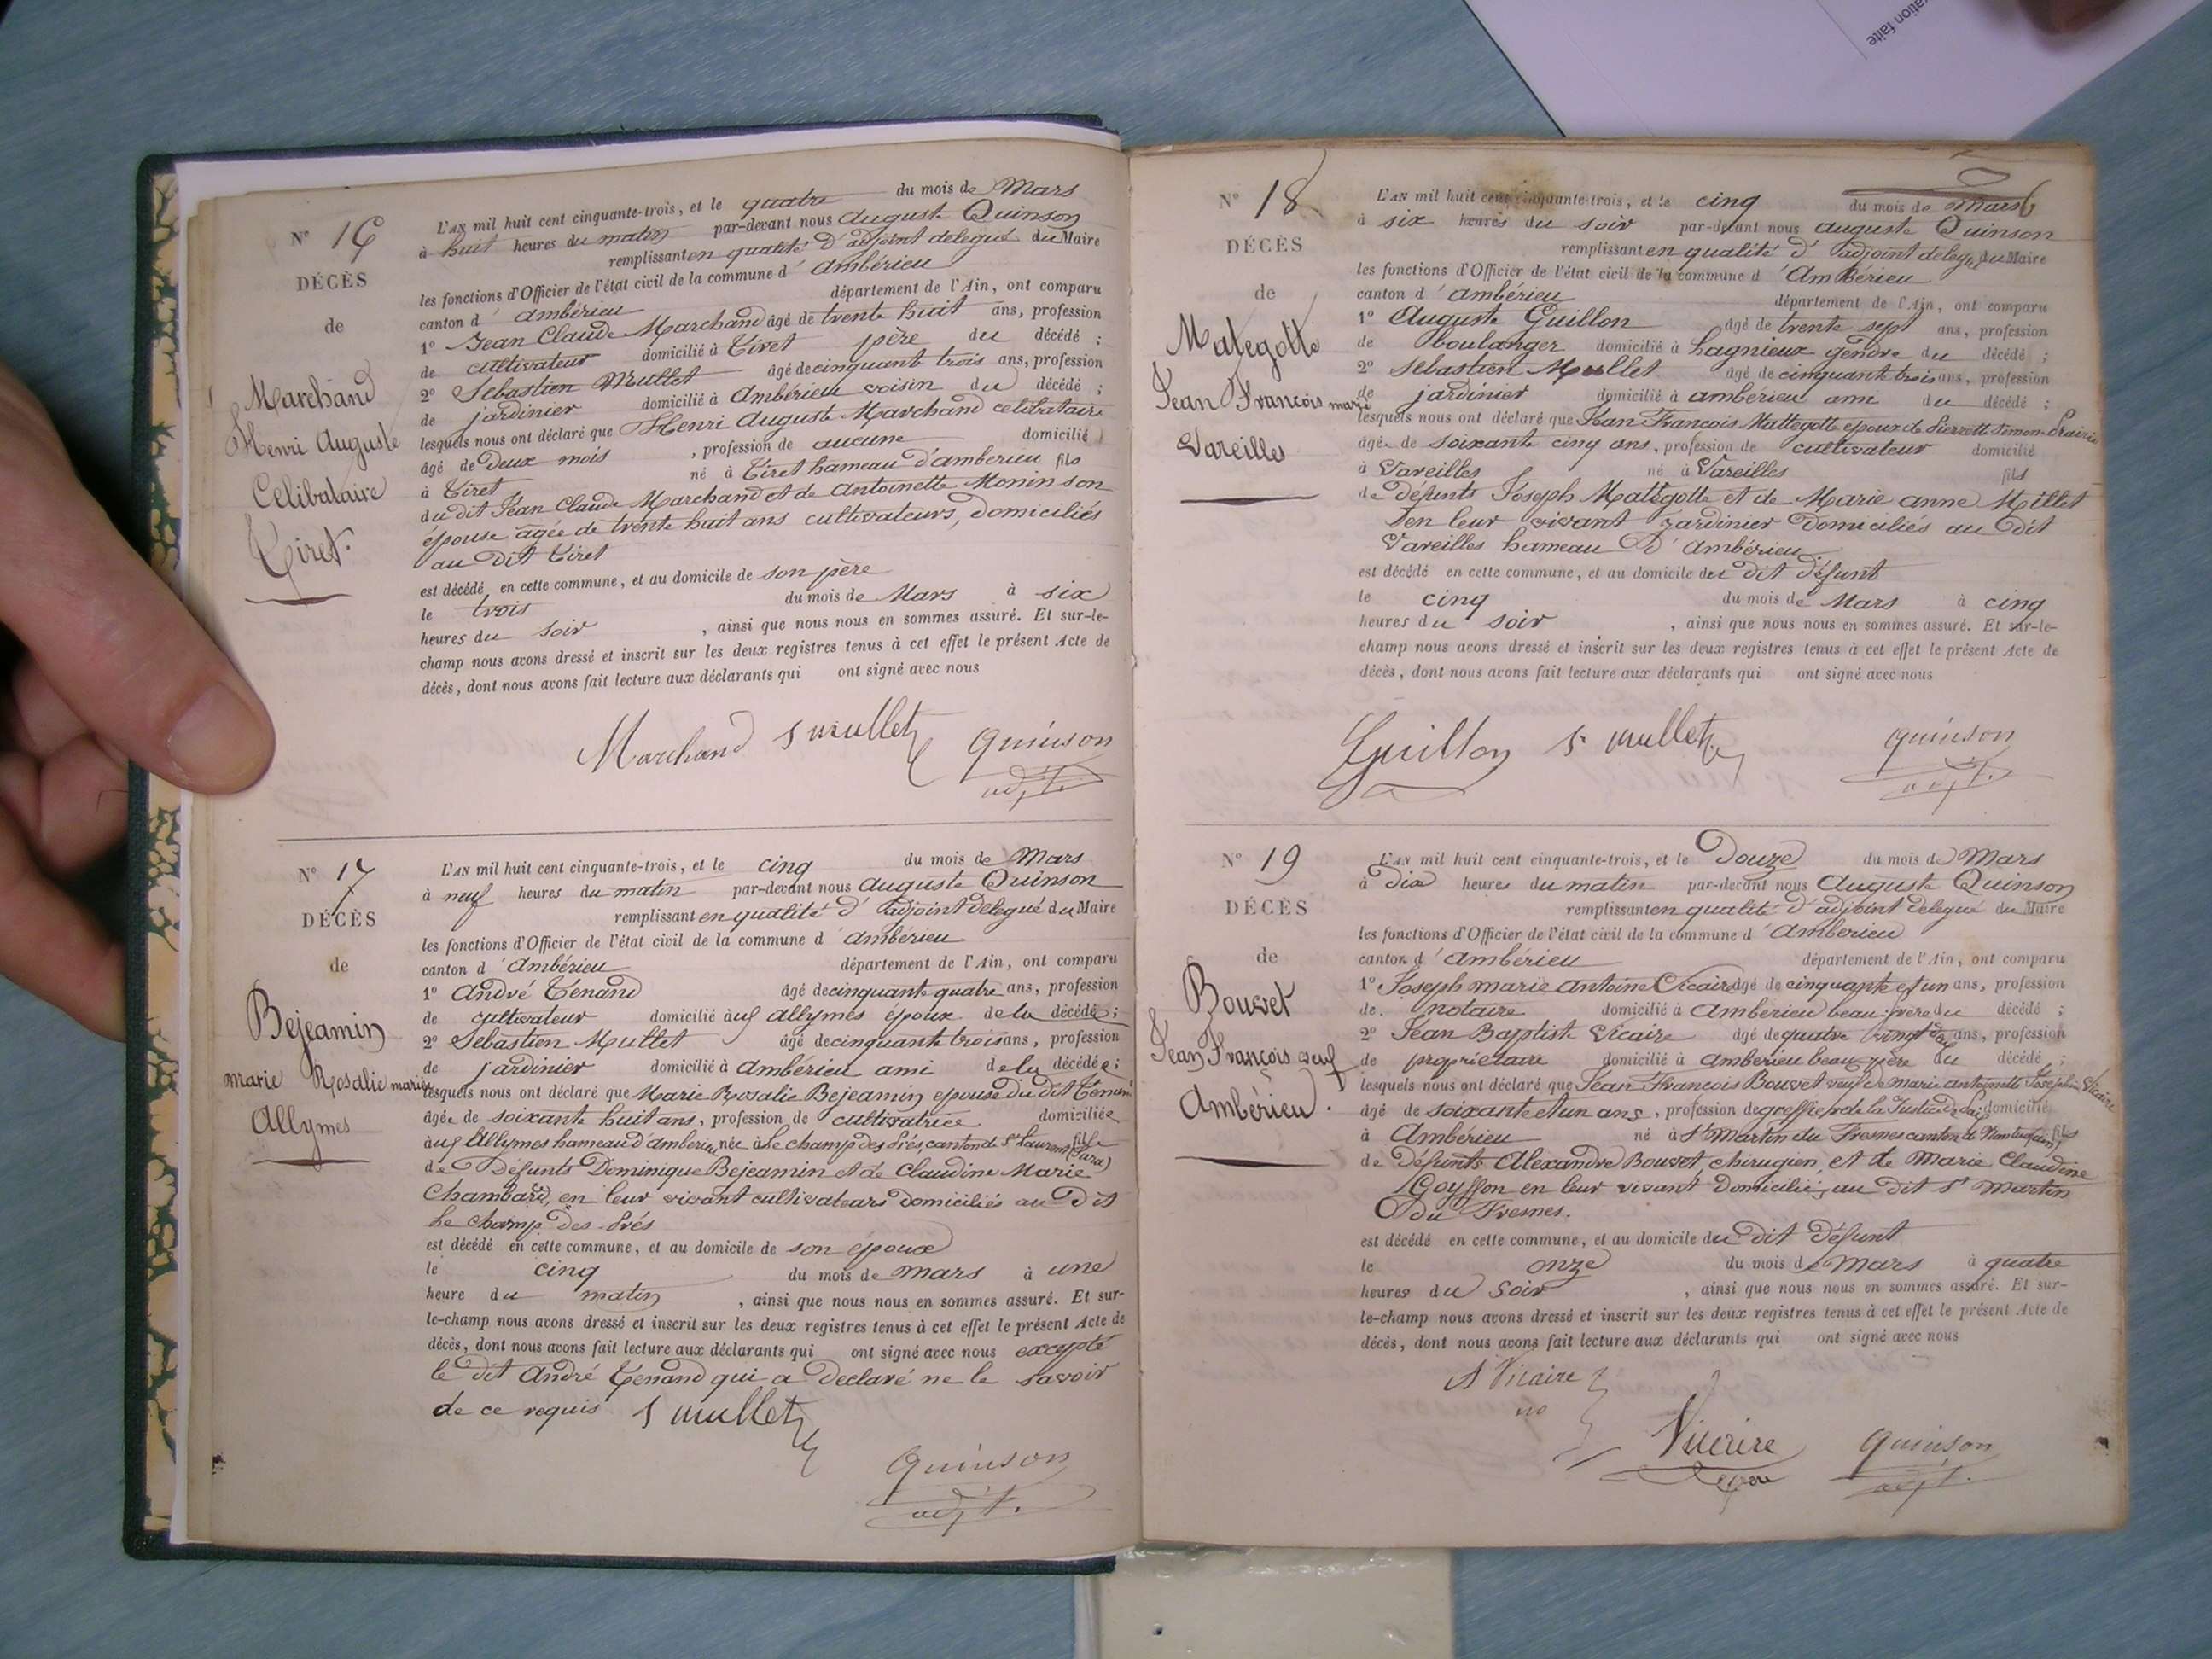 vation faite
N° 16
DÉCÈS
de
Marchand
Henri Auguste
Celibataire
Tiret.
L'AN mil huit cent cinquante-trois, et le quatre du mois de Mars
à huit heures du matin par-devant nous Auguste Quinson
remplissant en qualité d'adjoint delegué du Maire
les fonctions d'Officier de l'état civil de la commune d'Ambérieu
canton d'ambérieu département de l'Ain, ont comparu
1° Jean Claude Marchand âgé de trente huit ans, profession
de cultivateur domicilié à Tiret père du décédé ;
2° Sebastien Mullet âgé de cinquant trois ans, profession
de jardinier domicilié à Ambérieu voisin du décédé ;
lesquels nous ont déclaré que Henri Auguste Marchand celibataire
âgé de Deux mois , profession de aucune domicilié
à Tiret né à Tiret hameau d'amberieu fils
du dit Jean Claude Marchand et de Antoinette Monin son
épouse âgée de trente huit ans cultivateurs, domiciliés
au dit Tiret
est décédé en cette commune, et au domicile de son père
le trois du mois de Mars à six
heures du soir , ainsi que nous nous en sommes assuré. Et sur-le-
champ nous avons dressé et inscrit sur les deux registres tenus à cet effet le présent Acte de
décès, dont nous avons fait lecture aux déclarants qui ont signé avec nous
Marchand S mullet quinson
adjt.
N° 17
DÉCÈS
de
Bejeamin
marie Rosalie mariée
Allymes
L'AN mil huit cent cinquante-trois, et le cinq du mois de Mars
à neuf heures du matin par-devant nous Auguste Quinson
remplissant en qualité d'adjoint delegué du Maire
les fonctions d'Officier de l'état civil de la commune d'ambérieu
canton d'Ambérieu département de l'Ain, ont comparu
1° André Tenand âgé de cinquante quatre ans, profession
de cultivateur domicilié à Allymes époux de la décédée ;
2° Sebastien Mullet âgé de cinquante trois ans, profession
de jardinier domicilié à Ambérieu ami de la décédée ;
lesquels nous ont déclaré que Marie Rosalie Bejeamin epouse du dit
âgée de soixante huit ans, profession de cultivatrice domiciliée
Allymes hameau d'amberieu née à Le champ des Prés, canton de St Laurent (Jura) fille
de Défunts Dominique Bejeamin et de Claudine Marie
Chambard, en leur vivant cultivateurs domiciliés au Dit
Le champ Des Prés
est décédé en cette commune, et au domicile de son époux
le cinq du mois de mars à une
heure du matin , ainsi que nous nous en sommes assuré. Et sur-
le-champ nous avons dressé et inscrit sur les deux registres tenus à cet effet le présent Acte de
décès, dont nous avons fait lecture aux déclarants qui ont signé avec nous excepté
le Dit André Tenand qui a Declaré ne le savoir
de ce requis S mullet
quinson
adjt.
N° 18
DÉCÈS
de
Mategotte
Jean François marié
Vareilles
L'AN mil huit cent cinquante-trois, et le cinq du mois de Mars
à six heures du soir par-devant nous auguste Quinson
remplissant en qualité d'adjoint delegué du Maire
les fonctions d'Officier de l'état civil de la commune d'Ambérieu
canton d'ambérieu département de l'Ain, ont comparu
1° Auguste Guillon âgé de trente sept ans, profession
de boulanger domicilié à Lagnieux gendre du décédé ;
2° Sebastien Mullet âgé de cinquante trois ans, profession
de jardinier domicilié à ambérieu ami du décédé ;
lesquels nous ont déclaré que Jean François Mattegotte epoux de Pierrette Simon
âgé de soixante cinq ans, profession de cultivateur domicilié
à Vareilles né à Vareilles fils
de défunts Joseph Mategotte et de Marie anne Millet
en leur vivant jardinier Domiciliés au Dit
Vareilles hameau D'Ambérieu.
est décédé en cette commune, et au domicile du dit défunt
le cinq du mois de Mars à cinq
heures du soir , ainsi que nous nous en sommes assuré. Et sur-le-
champ nous avons dressé et inscrit sur les deux registres tenus à cet effet le présent Acte de
décès, dont nous avons fait lecture aux déclarants qui ont signé avec nous
Guillon S mullet quinson
adjt.
N° 19
DÉCÈS
de
Bouvet
Jean François veuf
Ambérieu.
L'AN mil huit cent cinquante-trois, et le Douze du mois de Mars
à Dix heures du matin par-devant nous Auguste Quinson
remplissant en qualité d'adjoint delegué du Maire
les fonctions d'Officier de l'état civil de la commune d'Amberieu
canton d'Ambérieu département de l'Ain, ont comparu
1° Joseph marie Antoine Vicaire âgé de cinquante et un ans, profession
de notaire domicilié à Ambérieu beau-frère du décédé ;
2° Jean Baptiste Vicaire âgé de quatre vingt ans, profession
de proprietaire domicilié à Amberieu beau-père du décédé ;
lesquels nous ont déclaré que Jean François Bouvet veuf de marie antoinette Josephine Vicaire
âgé de soixante et un ans, profession de greffier de la Justice de Paix domicilié
à Ambérieu né à St Martin du Fresnes canton de Nantua (ain) fils
de Défunts Alexandre Bouvet, chirugien, et de Marie Claudine
Goyffon en leur vivant Domiciliés au dit St Martin
du Fresnes.
est décédé en cette commune, et au domicile du Dit Défunt
le onze du mois de Mars à quatre
heures du Soir , ainsi que nous nous en sommes assuré. Et sur-
le-champ nous avons dressé et inscrit sur les deux registres tenus à cet effet le présent Acte de
décès, dont nous avons fait lecture aux déclarants qui ont signé avec nous
A Vicaire
no
Vicaire quinson
adjt.